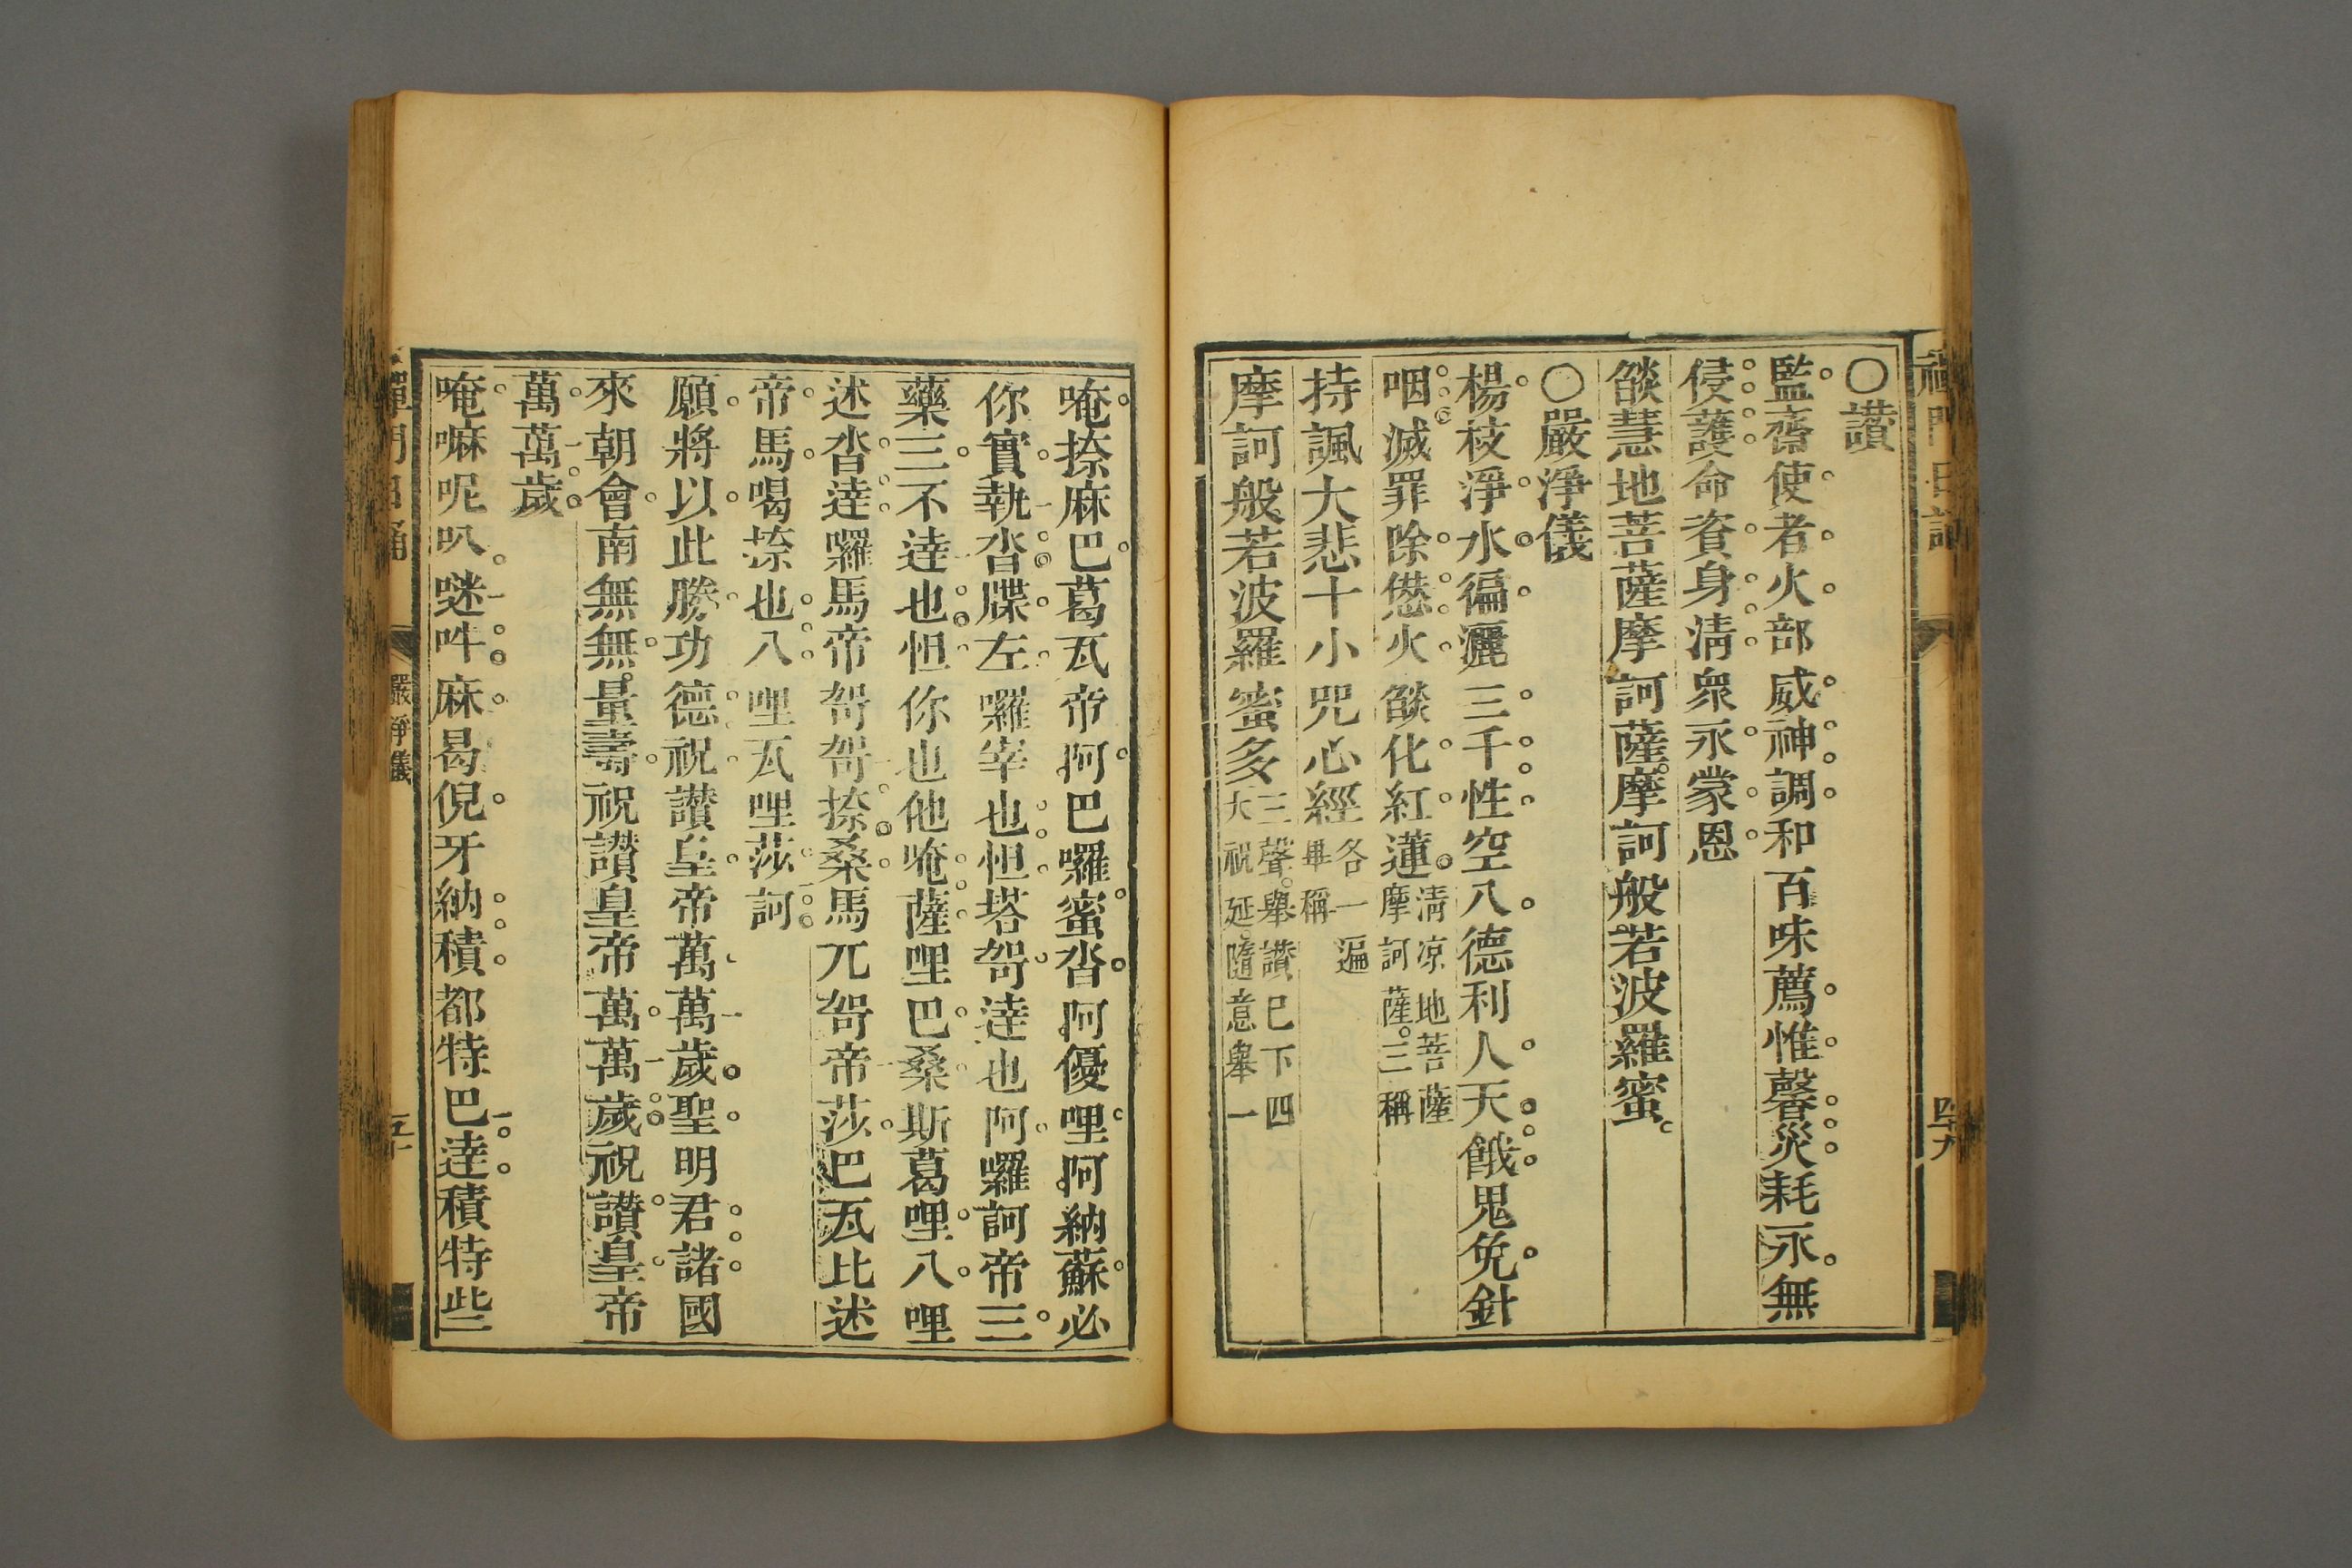 禪門日誦
四十九
○讃
監齋使者火部威神調和百味薦惟馨災耗永無
侵護命資身淸衆永蒙恩
燄慧地菩薩摩訶薩摩訶般若波羅蜜
○嚴淨儀
楊枝淨水徧灑三千性空八德利人天餓鬼免針
咽滅罪除愆火燄化紅蓮
淸凉地菩薩
摩訶薩三稱
持諷大悲十小咒心經
各一遍
畢稱
摩訶般若波羅蜜多
三聲舉讃巳下四
大祝延隨意舉一
唵捺麻巴葛瓦帝阿巴囉蜜沓阿優哩阿納蘇必
你實執沓牒左囉宰也怛塔哿達也阿囉訶帝三
藥三不達也怛你也他唵薩哩巴桑斯葛哩八哩
述沓達囉馬帝哿哿捺桑馬兀哿帝莎巴瓦比述
帝馬喝捺也八哩瓦哩莎訶
願將以此勝功德祝讃皇帝萬萬歲聖明君諸國
來朝會南無無量壽祝讃皇帝萬萬歲祝讃皇帝
萬萬歲
唵嘛呢叭㘕吽麻曷倪牙納積都特巴達積特些
禪門日誦
嚴淨儀
五十